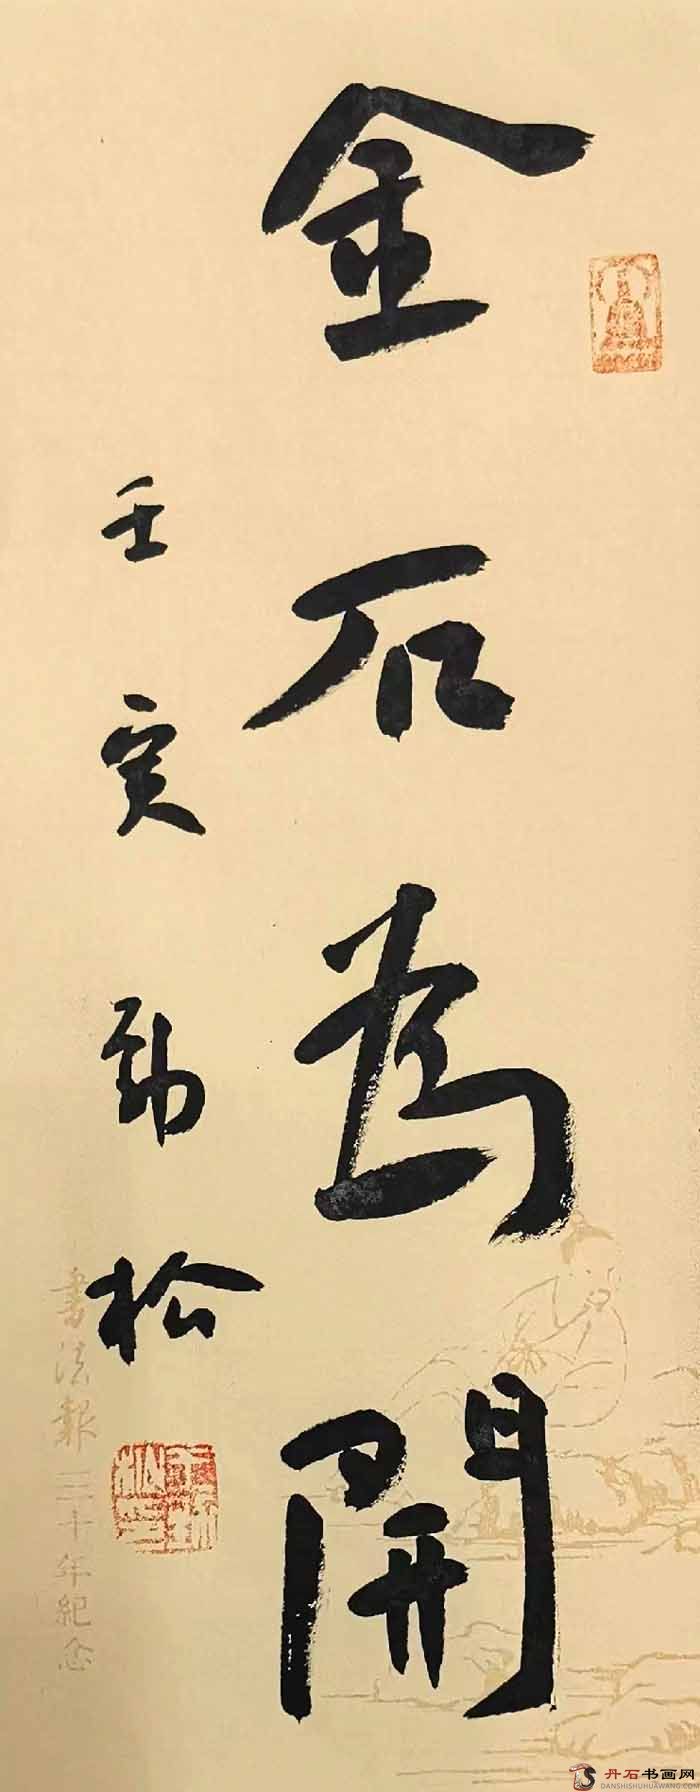 金石為開
壬寅 勁松
書法報三十年紀念
丹石书画网
DANSHISHUHUAWANG.COM